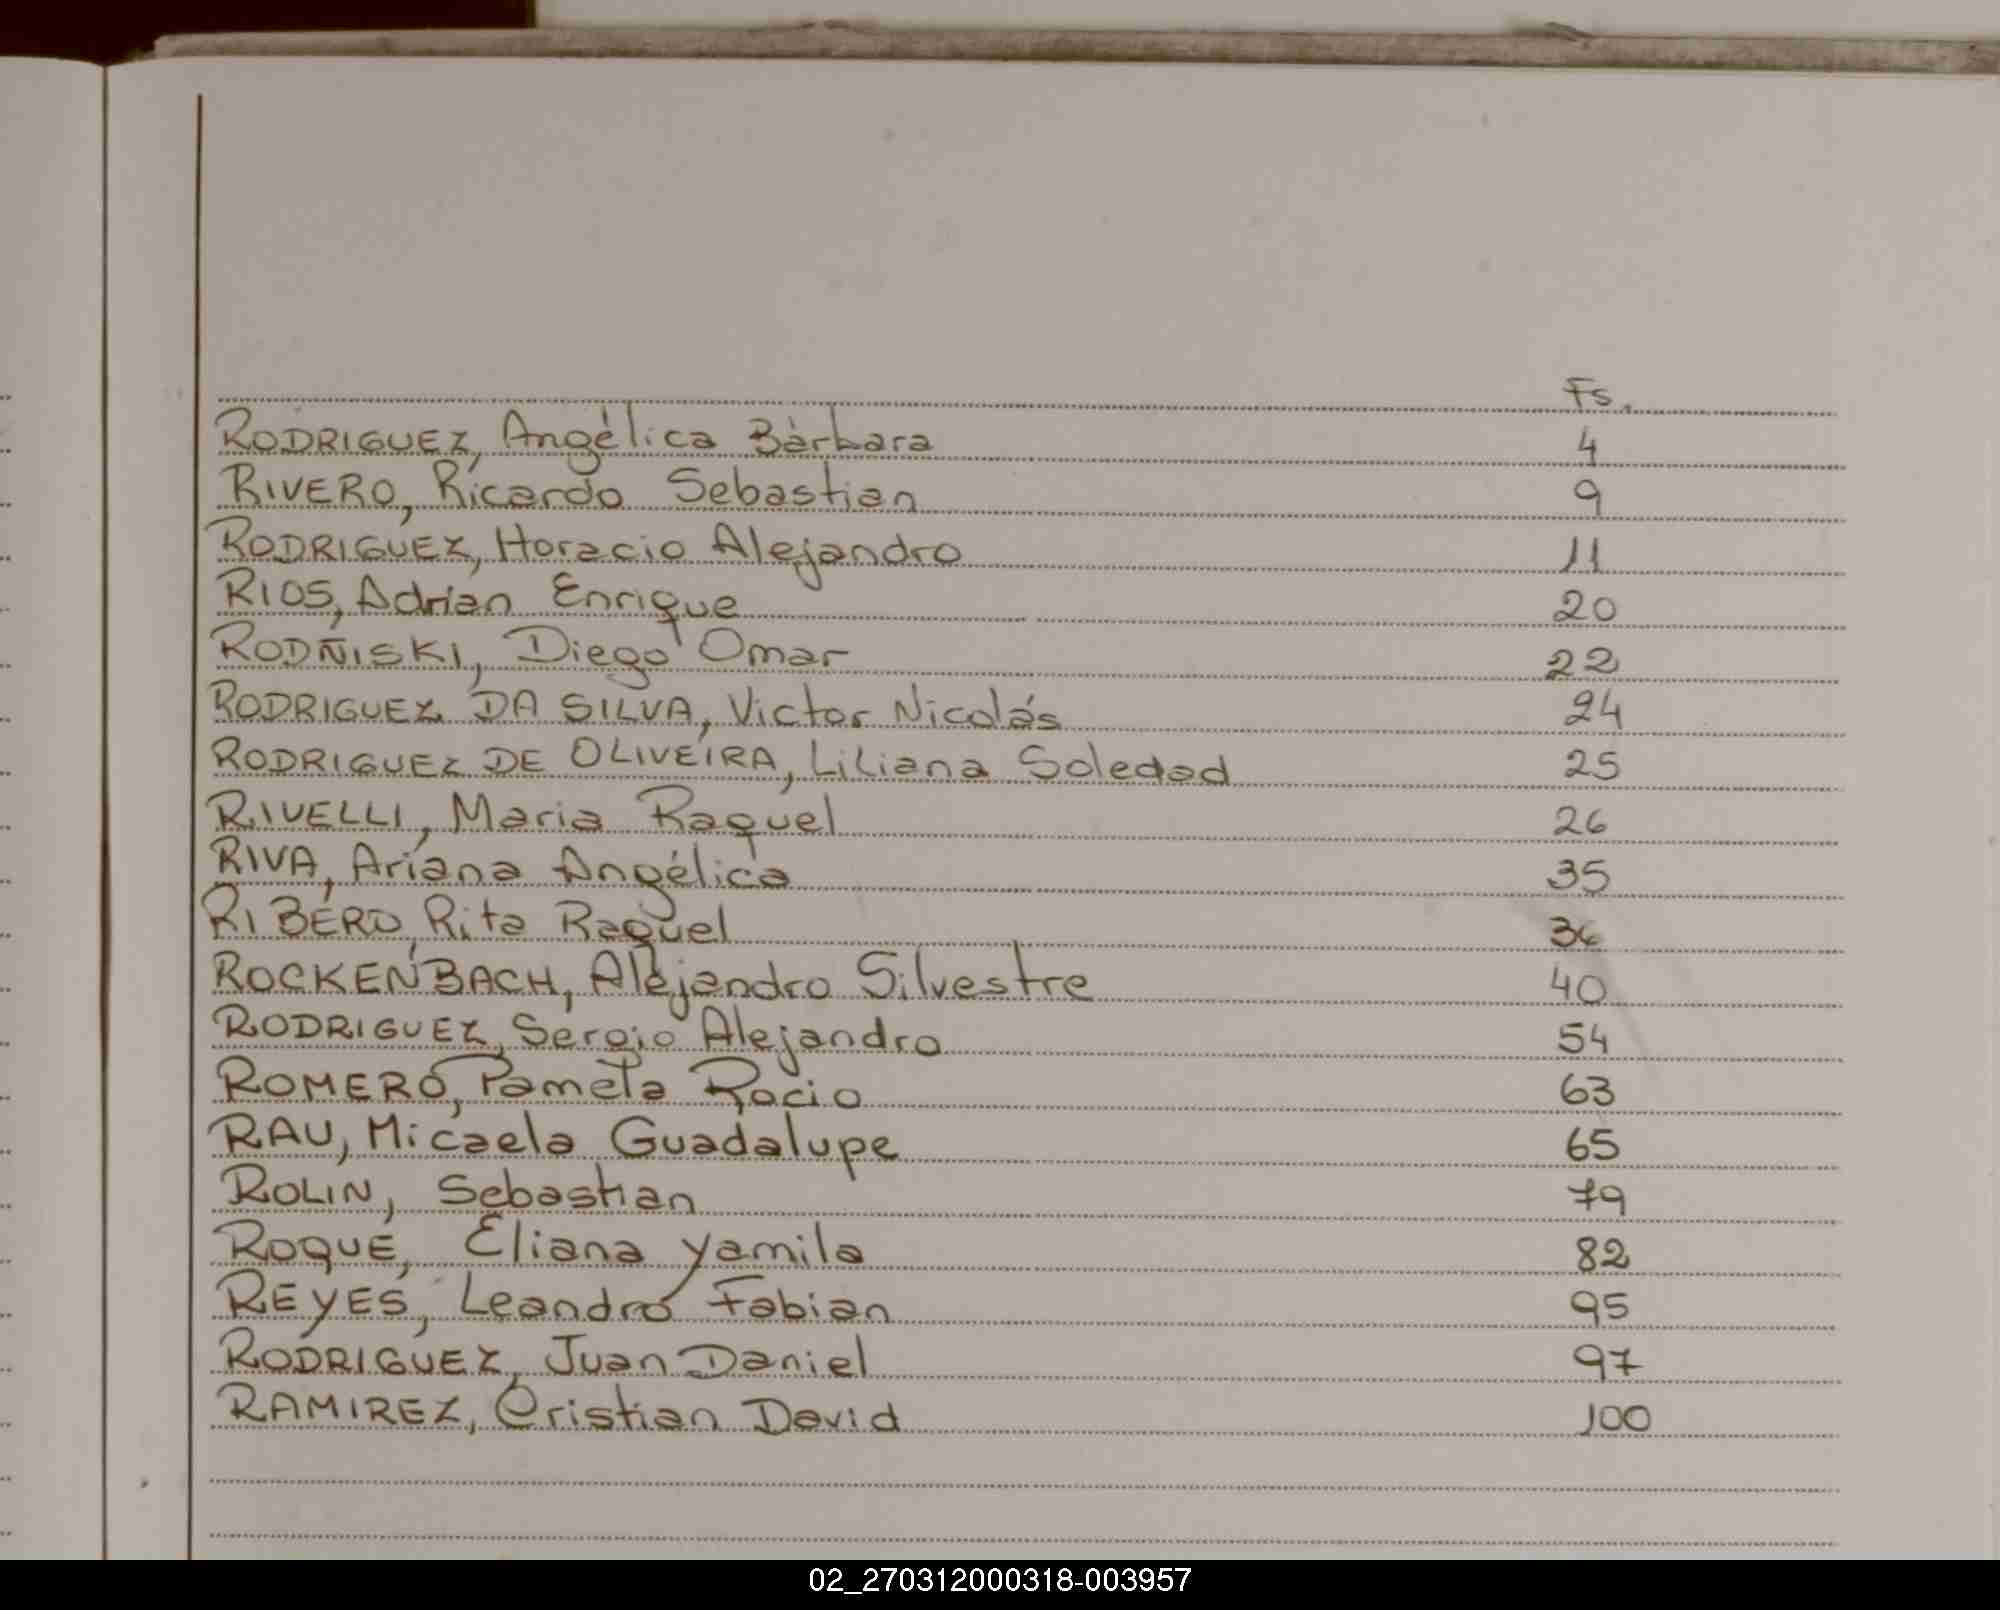 Fs.
RODRIGUEZ, Angélica Bárbara 4
RIVERO, Ricardo Sebastian 9
RODRIGUEZ, Horacio Alejandro 11
RIOS, Adrian Enrique 20
RODÑISKI, Diego Omar 22
RODRIGUEZ DA SILVA, Victor Nicolás 24
RODRIGUEZ DE OLIVEIRA, Liliana Soledad 25
RIVELLI, Maria Raquel 26
RIVA, Ariana Angélica 35
RIBERO, Rita Raquel 36
ROCKENBACH, Alejandro Silvestre 40
RODRIGUEZ, Sergio Alejandro 54
ROMERO, Pamela Rocio 63
RAU, Micaela Guadalupe 65
ROLIN, Sebastian 79
ROQUE, Eliana Yamila 82
REYES, Leandro Fabian 95
RODRIGUEZ, Juan Daniel 97
RAMIREZ, Cristian David 100
02_270312000318-003957